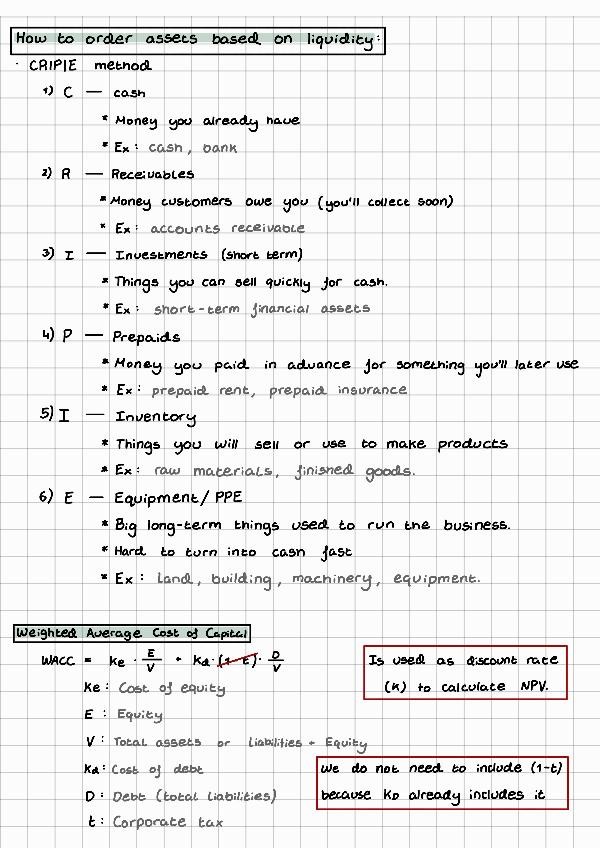 How to order assets based on liquidity:
· CRIPIE method
1) C — cash
* Money you already have
* Ex: cash, bank
2) R — Receivables
* Money customers owe you (you'll collect soon)
* Ex: accounts receivable
3) I — Investments (short term)
* Things you can sell quickly for cash.
* Ex: short-term financial assets
4) P — Prepaids
* Money you paid in advance for something you'll later use
* Ex: prepaid rent, prepaid insurance
5) I — Inventory
* Things you will sell or use to make products
* Ex: raw materials, finished goods.
6) E — Equipment/PPE
* Big long-term things used to run the business.
* Hard to turn into cash fast
* Ex: Land, building, machinery, equipment.
Weighted Average Cost of Capital
WACC = Ke · E/V + Kd · (1-t) · D/V
Is used as discount rate
(K) to calculate NPV.
Ke: Cost of equity
E: Equity
V: Total assets or liabilities + Equity
Kd: Cost of debt
We do not need to include (1-t)
D: Debt (total liabilities)
because KD already includes it
t: Corporate tax